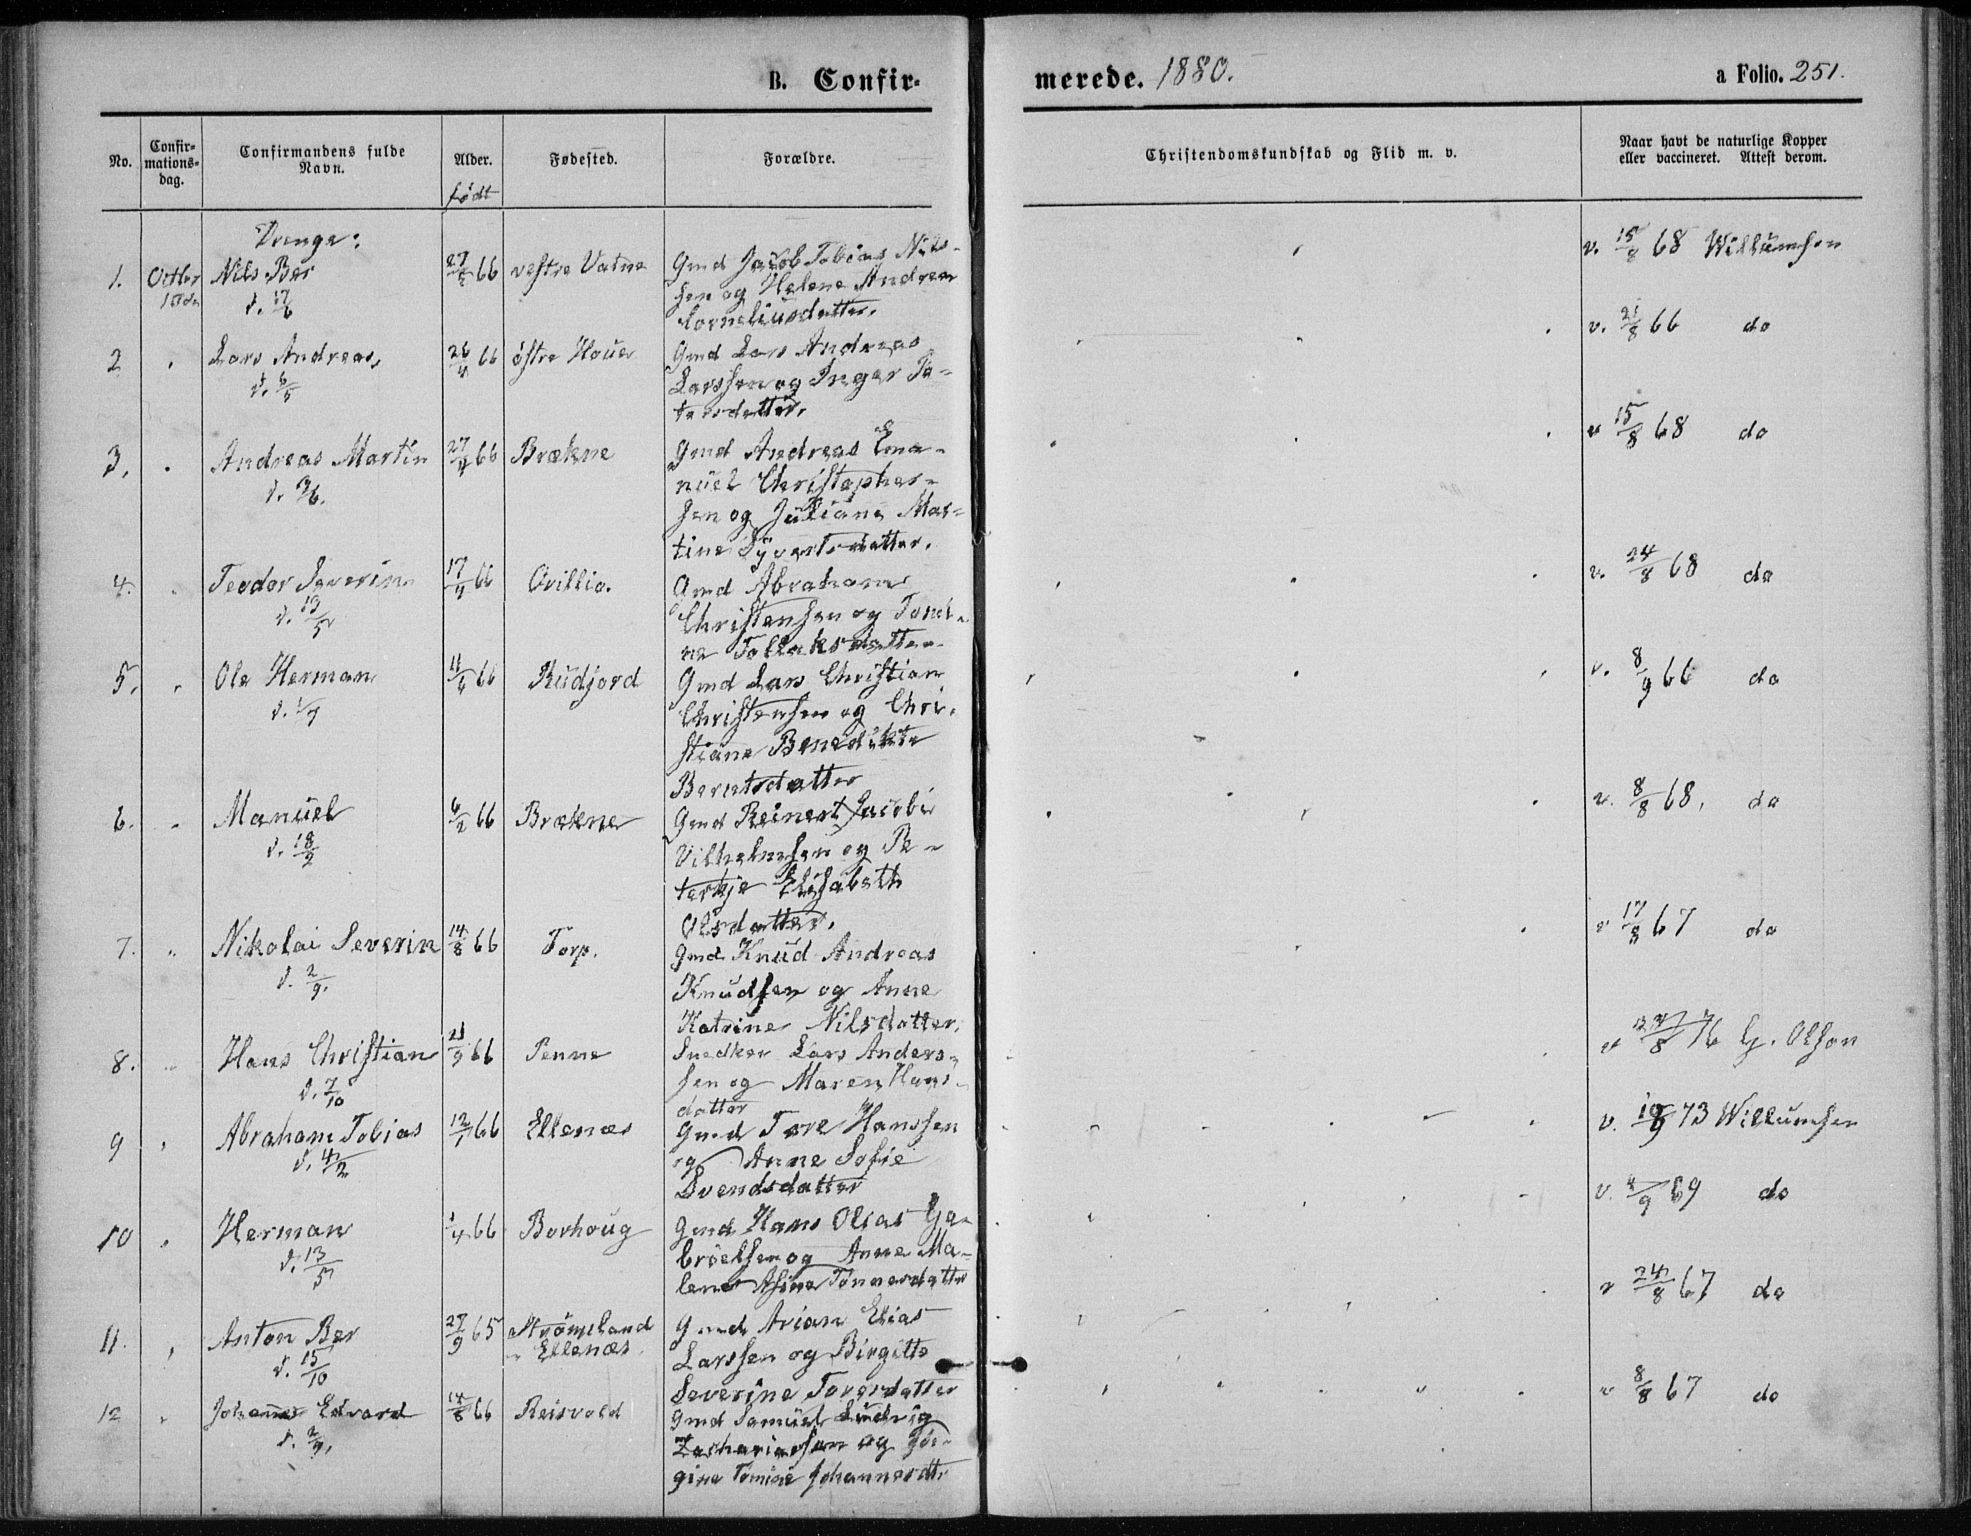 B. Confir-
merede. 1880.
a Folio. 251.
No.
Confir-
mations-
dag.
Confirmandens fulde
Navn.
Alder.
født
Fødested.
Forældre.
Christendomskundskab og Flid m. v.
Naar havt de naturlige Kopper
eller vaccineret. Attest derom.
Drenge:
1. Octbr Nils Ber 66 vestre Vatne Gmd Jacob Tobias Nils-
d. 17/6 sen og Helene Andrea
Corneliusdatter.
v. 15/8 68 Willumsen
2 Lars Andreas, 26/4 66 östre Houe Gmd Lars Andreas
d. 6/5 Larssen og Inger Pe-
tersdatter.
v. 21/8 66 do
3. Andreas Martin 27/4 66 Brækne Gmd Andreas Ema-
nuel Christopher-
sen og Juliane Mar-
tine Syvertsdatter.
v 15/8 68 do
4. Teodor Severin 17/4 66 Qvillio. Gmd Abraham
d. 13/5 Christensen og Tond-
ne Tollaksdatter
v. 24/8 68 do
5. Ole Herman 66 Rudjord Gmd Lars Christian
d. 1/7 Christensen og Chri-
stiane Benedikte
Berntsdatter
v. 8/9 66 do
6. Manuel 6/2 66 Brækne Gmd Reinert Jacobi
d. 18/2 Vilhelmsen og Pe-
terkje Elisabeth
Olsdatter.
v. 8/8 68. do
7. Nikolai Severin 14/8 66 Torp. Gmd Knud Andreas
d. 2/9. Knudsen og Anne
Katrine Nilsdatter.
v 17/8 67 do
8. Hans Christian 21/9 66 Penne Snedker Lars Anders-
d. 7/10 sen og Maren Hans-
datter
v 76 G. Olson
9 Abraham Tobias 12/1 66 Ellenæs Gmd Tore Hanssen
d. 4/2 og Anne Sofie
Svendsdatter
v. 73 Willumsen
10 Herman 1/4 66 Borhoug Gmd Hans Olias Ga-
d. 13/5 brielsen og Anne Ma-
lene Asine Tønnesdatter
v. 69 do
11. Anton Ber 27/9 65 Strömsland Gmd Arian Elias
d. 15/10 Ellenæs. Larssen og Birgitte
Severine Toresdatter
v 24/8 67 do
12 Edvard 14/8 66 Reisvold Gmd Samuel Ludvig
d. 2/9. Zachariassen og Jör-
gine Tomine Johannesdtr
v 8/8 67 do